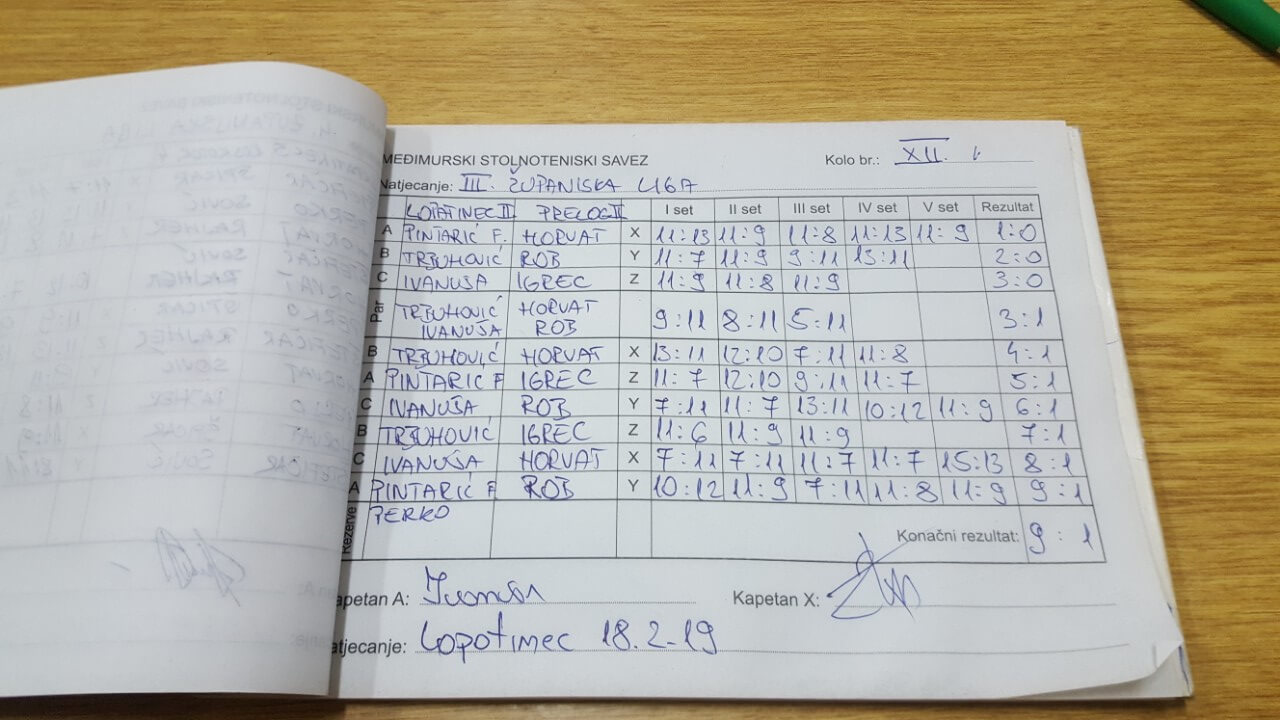 MEĐIMURSKI STOLNOTENISKI SAVEZ Kolo br.: XII.
Natjecanje: III. ŽUPANISKA LIGA
LOPATINEC II PRELOG II I set II set III set IV set V set Rezultat
A PINTARIĆ F. HORVAT X 11:13 11:9 11:8 11:13 11:9 1:0
B TRBUHOVIĆ ROB Y 11:7 11:9 9:11 13:11 2:0
C IVANUŠA IGREC Z 11:9 11:8 11:9 3:0
Par TRBUHOVIĆ HORVAT 9:11 8:11 5:11 3:1
IVANUŠA ROB
B TRBUHOVIĆ HORVAT X 13:11 12:10 7:11 11:8 4:1
A PINTARIĆ F IGREC Z 11:7 12:10 9:11 11:7 5:1
C IVANUŠA ROB Y 7:11 11:7 13:11 10:12 11:9 6:1
B TRBUHOVIĆ IGREC Z 11:6 11:9 11:9 7:1
C IVANUŠA HORVAT X 7:11 7:11 11:7 11:7 15:13 8:1
A PINTARIĆ F ROB Y 10:12 11:9 7:11 11:8 11:9 9:1
Rezerve PERKO
Konačni rezultat: 9:1
apetan A: Ivanuša Kapetan X:
atjecanje: Lopatinec 18.2-19